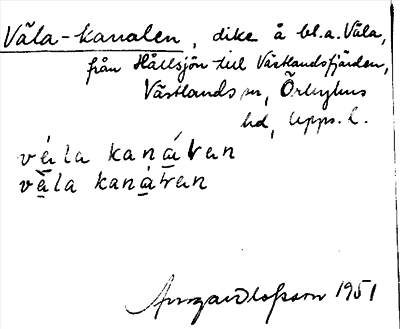 Väla-kanalen, dike å bl.a. Väla,
från Hållsjön till Västlandsfjärden,
Västlands sn, Örbyhus
hd, Upps. l.
vá̤la kaná̤ran
vä̤̀la kaná̤ran
1951